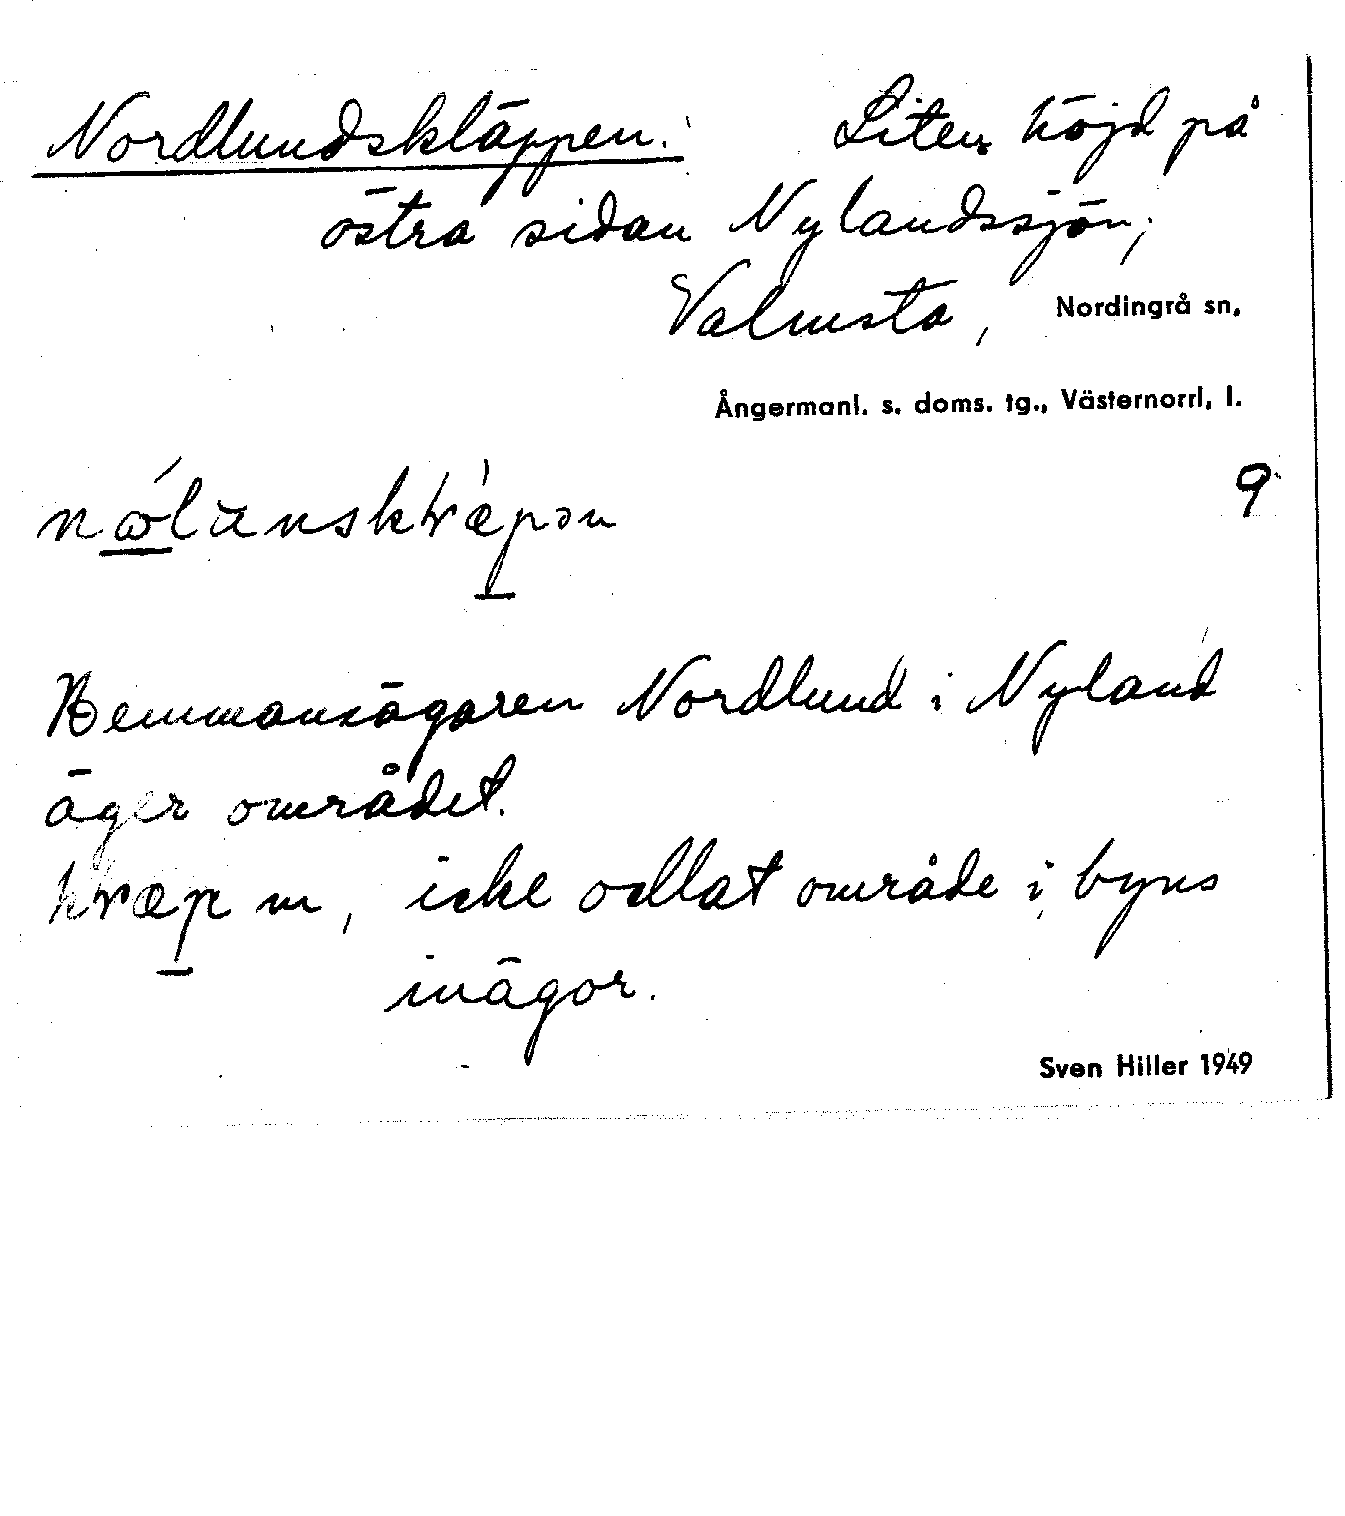 Nordlundskläppen. Liten höjd på
östra sidan Nylandssjön,
Valmsta, Nordingrå sn,
Ångermanl. s. doms. tg., Västernorrl. l.
9
Hemmansägaren Nordlund i Nyland
äger området.
m, icke odlat område i byns
inägor.
Sven Hiller 1949